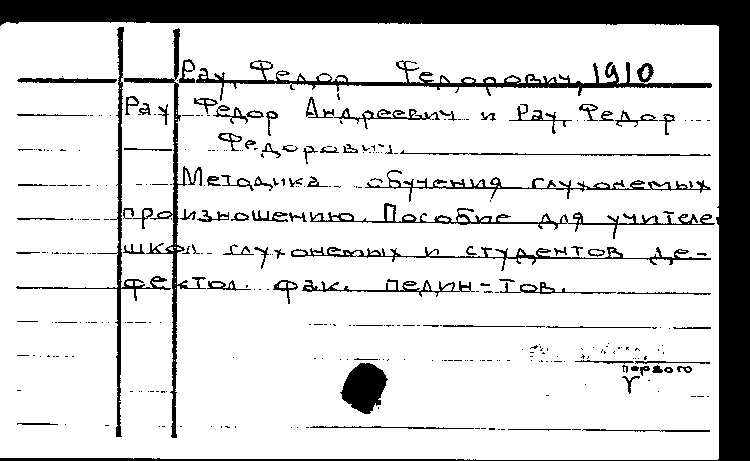 Рау, Федор Федорович, 1910
Рау, Федор Андреевич и Рау, Федор
Федорович.
Методика обучения глухонемых
произношению. Пособие для учителей
школ глухонемых и студентов де-
фектол. фак. педин-тов.
первого